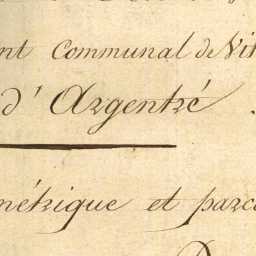 nt Communal de Vit
d'Argentré.
métrique et parce